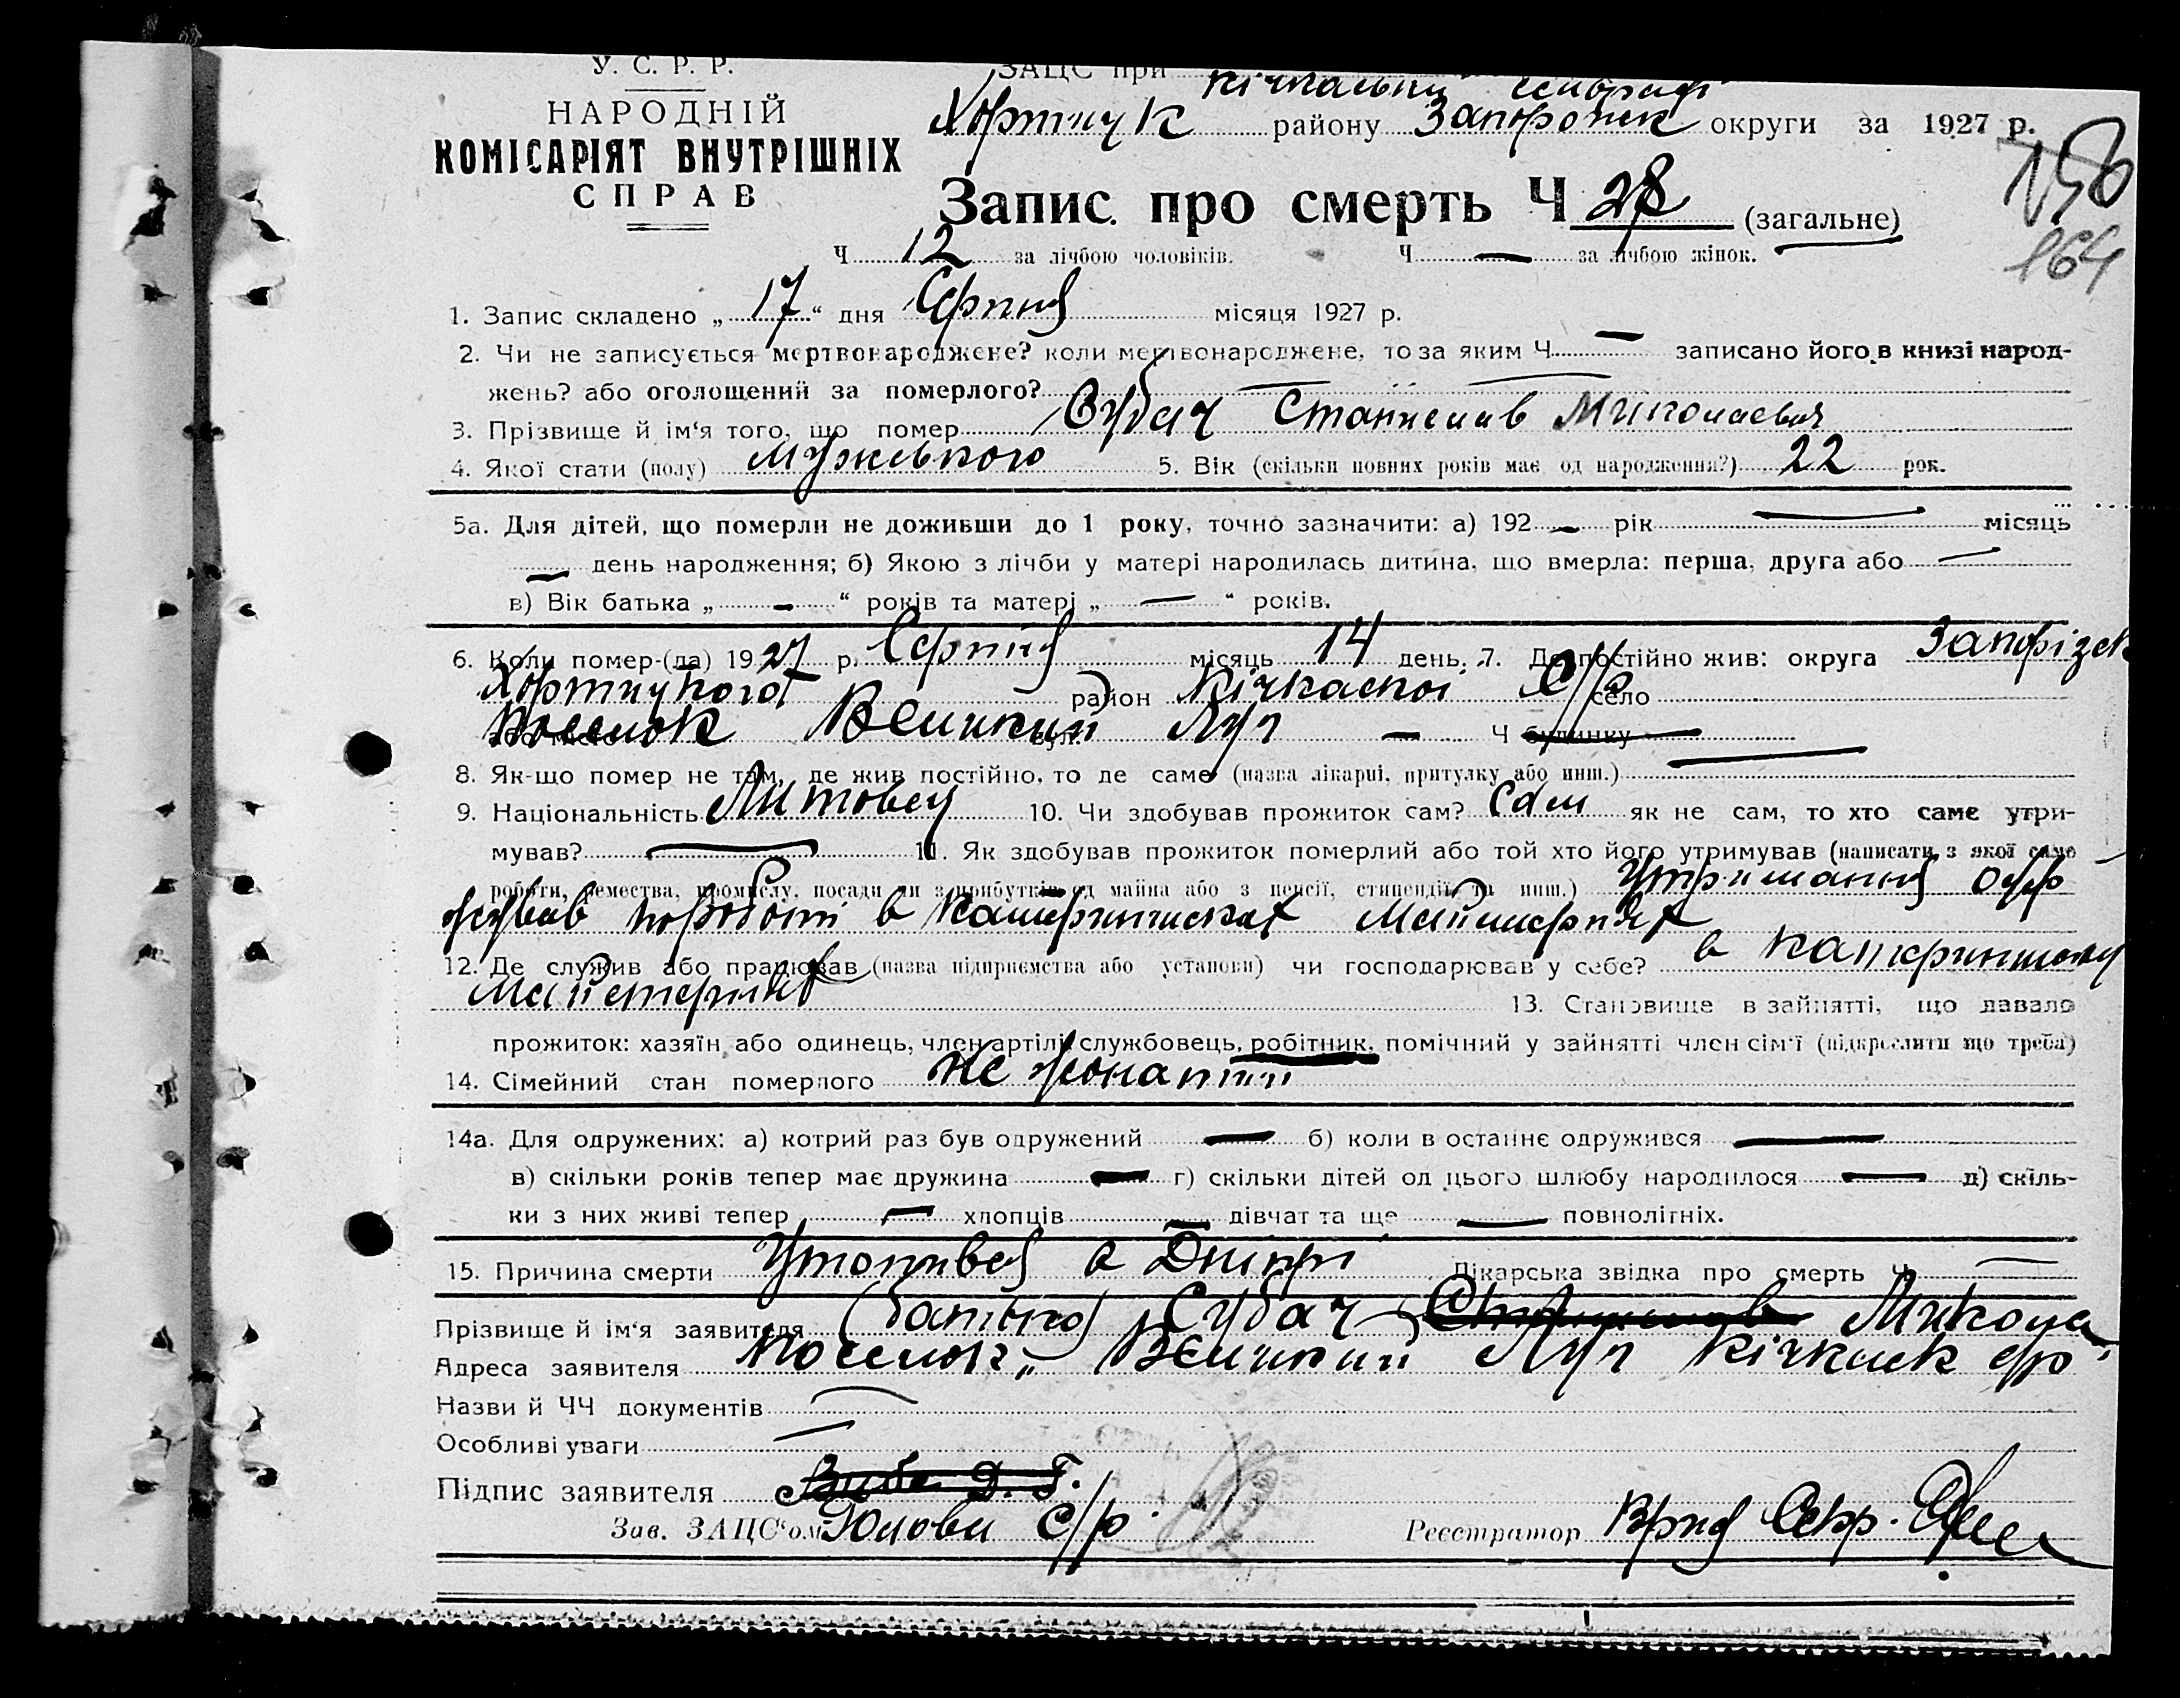 У. С. Р. Р.
НАРОДНІЙ
КОМІСАРІЯТ ВНУТРІШНІХ
СПРАВ
ЗАЦС при Кічкаський сільраді
Хортицьк району Запорожск округи за 1927 р.
164
Запис про смерть Ч 28 (загальне)
Ч 12 за лічбою чоловіків. Ч — за лічбою жінок.
1. Запис складено „ 17 “ дня Серпня місяця 1927 р.
2. Чи не записується мертвонароджене? коли мертвонароджене, то за яким Ч — записано його в книзі народ-
жень? або оголощений за померлого? —
3. Прізвище й ім‘я того, що помер Субач Станислав Миколаевич
4. Якої стати (полу) Мужського 5. Вік (скільки повних років має од народження?) 22 рок.
5а. Для дітей, що померли не доживши до 1 року, точно зазначити: а) 192 — рік — місяць
— день народження; б) Якою з лічби у матері народилась дитина, що вмерла: перша, друга або —
в) Вік батька „ — “ років та матері „ — “ років.
6. Коли помер-(ла) 1927 р. Серпня місяць 14 день. 7. Де постійно жив: округа Запорізськ
Хортицького район Кічкаскої С/р село
Поселок Великий Луг — Ч будинку —
8. Як-що помер не там, де жив постійно, то де саме (назва лікарні, притулку або инш.) —
9. Національність Литовец 10. Чи здобував прожиток сам? Сам як не сам, то хто саме утри-
мував? — 11. Як здобував прожиток померлий або той хто його утримував (написати з якої саме
роботи, ремества, промислу, посади чи з прибутків од майна або з пенсії, стипендії та инш.) Утримання одер
жував по роботі в майстернях
12. Де служив або працював (назва підприємства або установи) чи господарював у себе? в
майстернях 13. Становище в зайнятті, що давало
прожиток: хазяїн або одинець, член артілі, службовець, робітник, помічний у зайнятті член сім‘ї (підкреслити що треба)
14. Сімейний стан померлого Не жонатий
14а. Для одружених: а) котрий раз був одружений — б) коли в останнє одружився —
в) скільки років тепер має дружина — г) скільки дітей од цього шлюбу народилося — д) скіль-
ки з них живі тепер — хлопців — дівчат та ще — повнолітніх.
15. Причина смерти Утопився в Дніпрі Лікарська звідка про смерть Ч —
Прізвище й ім‘я заявителя (батько) Субач Станислав Микола
Адреса заявителя Поселок „Великий Луг Кічкаск с/р
Назви й ЧЧ документів —
Особливі уваги —
Підпис заявителя Д. Г.
Зав. ЗАЦС‘ом Голови С/р Реєстратор Врид Секр.